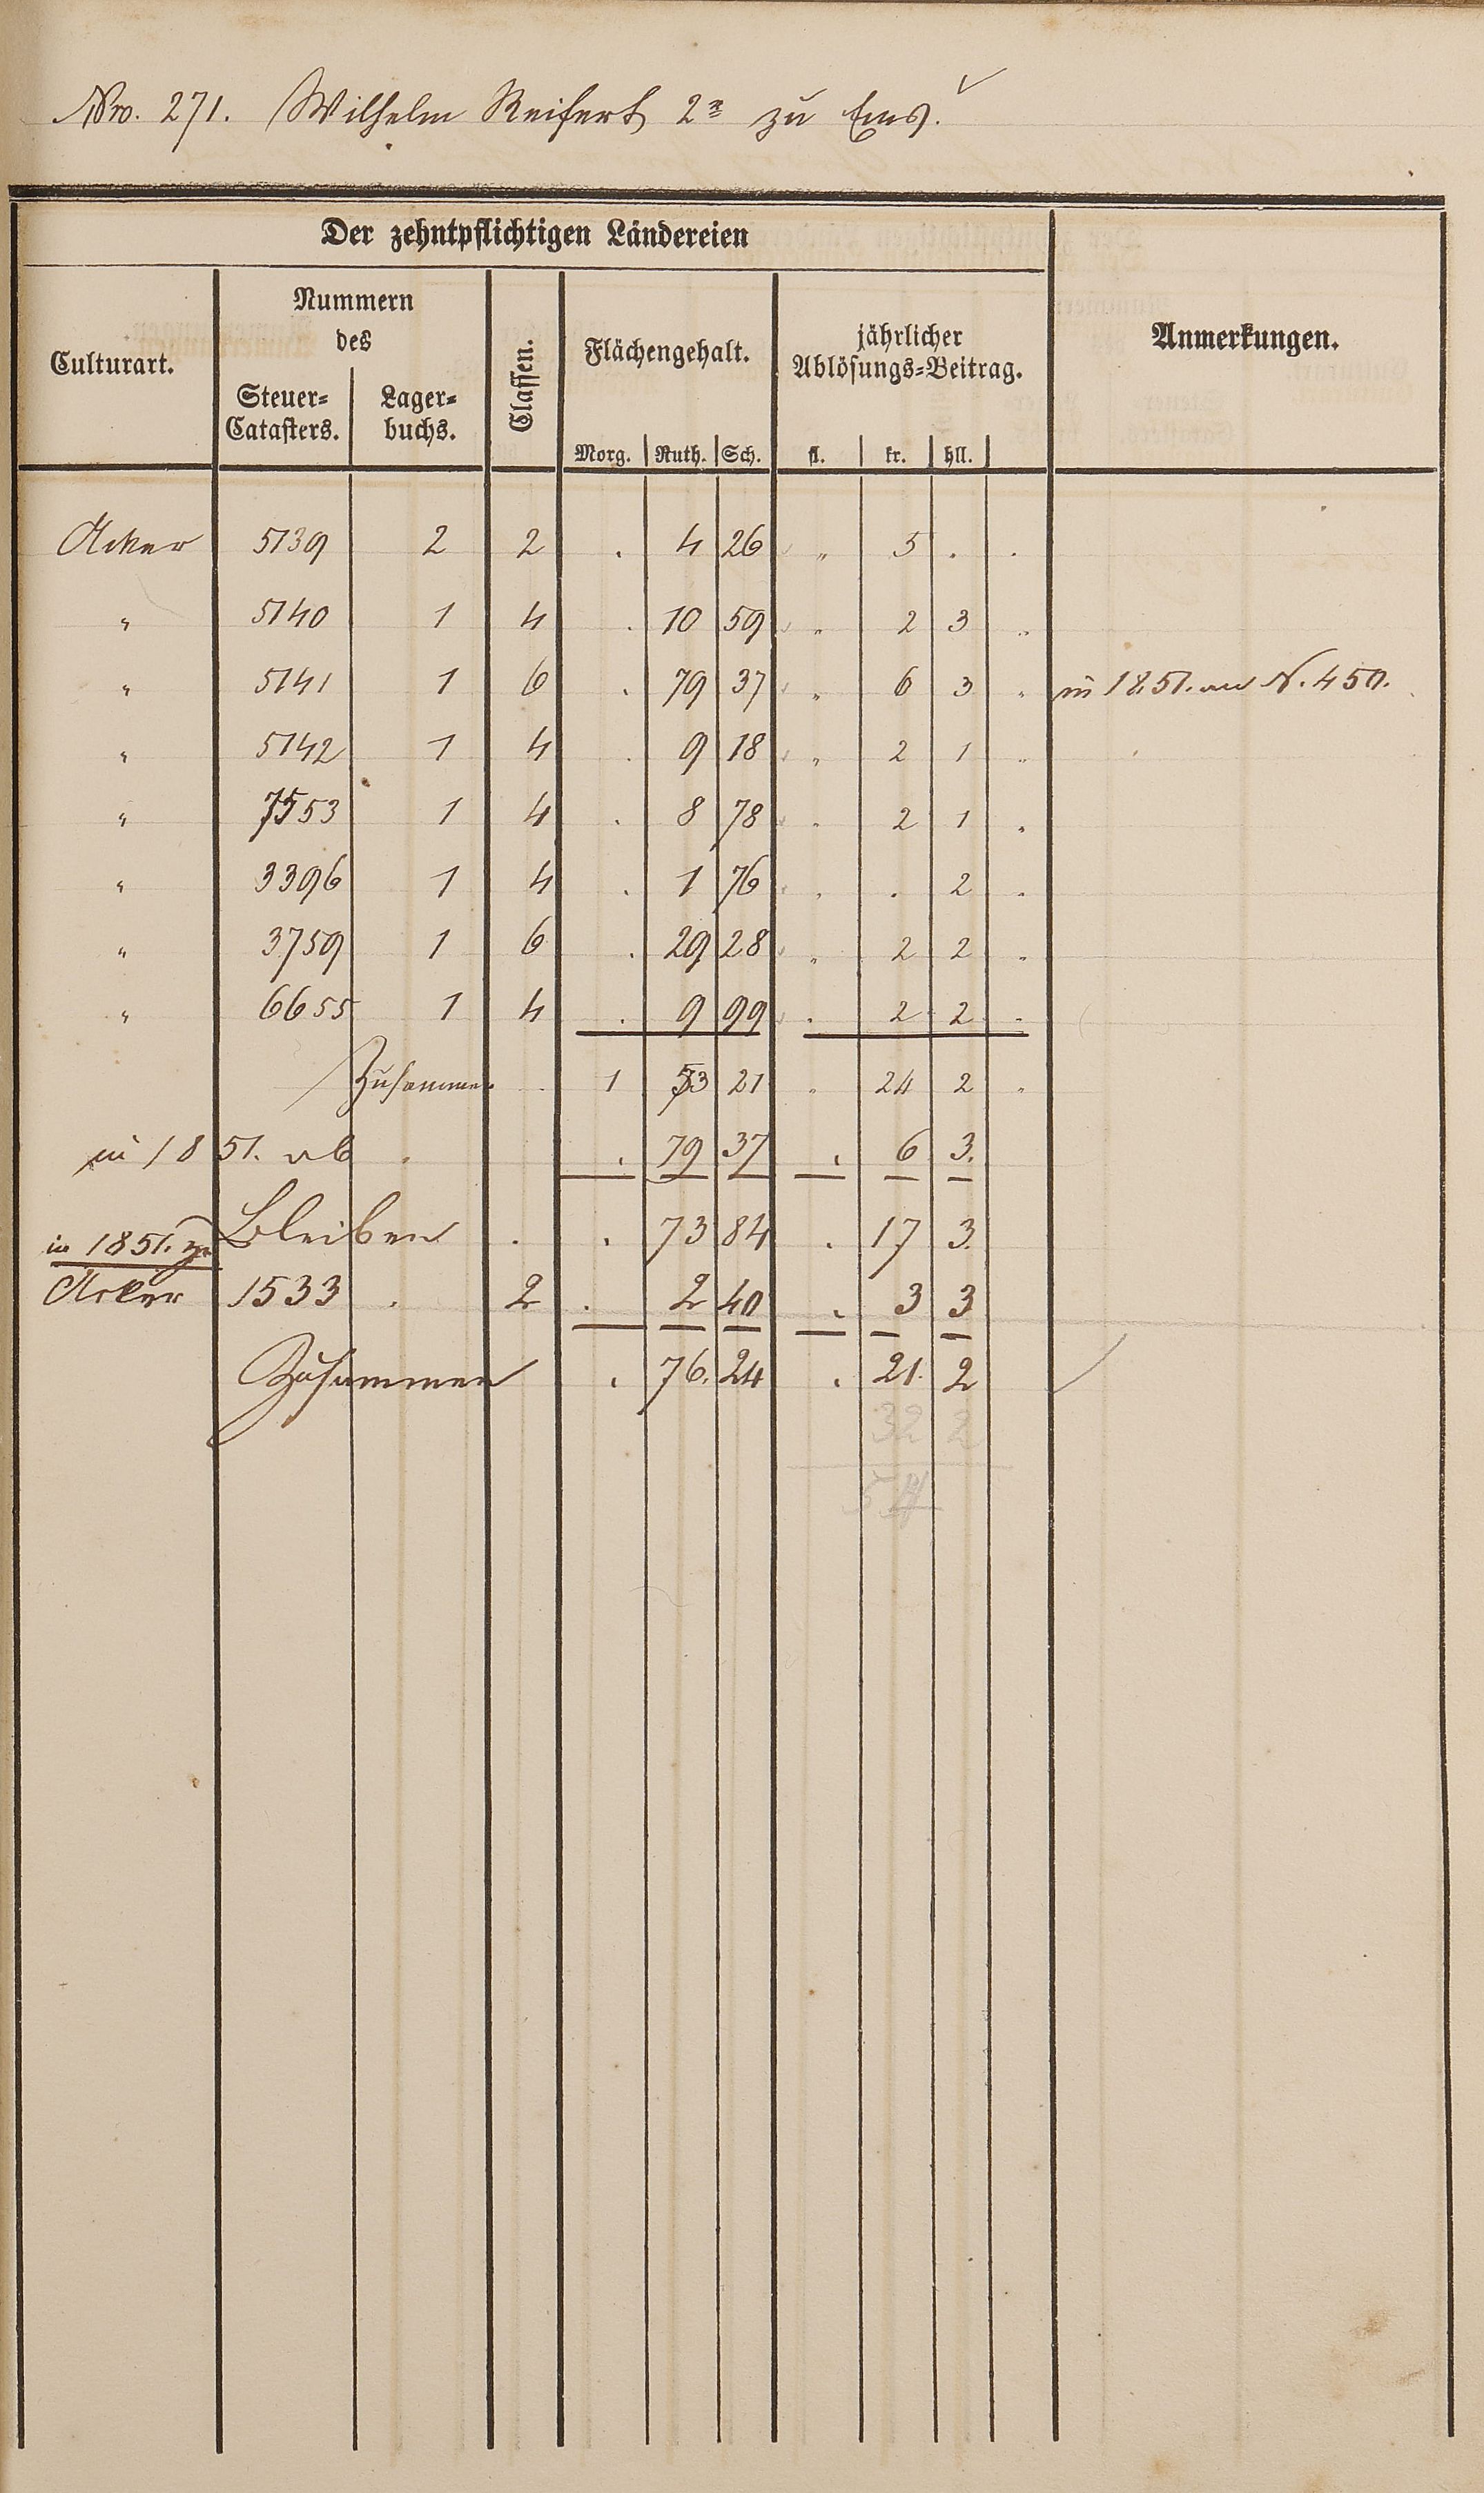 Nro. 271. Wilhelm Reifert 2r zu Ems.
Der zehntpflichtigen Ländereien
Culturart.
Nummern
des
Steuer=
Catasters.
Lager=
buchs.
Classen.
Flächengehalt.
Morg. Ruth. Sch.
jährlicher
Ablösungs=Beitrag.
fl. kr. hll.
Anmerkungen.
Acker 5139 2 2 . 4 26 " 5 . .
" 5140 1 4 . 10 59 " 2 3 "
" 5141 1 6 . 79 37 " 6 3 " in 1851. an N. 450.
" 5142 1 4 . 9 18 " 2 1 "
" 7553 1 4 . 8 78 " 2 1 "
" 3396 1 4 . 1 76 . . 2 .
" 3759 1 6 . 29 28 " 2 2 "
" 6655 1 4 . 9 99 . 2 2 .
Zusammen 1 53 21 " 24 2 "
in 1851. ab . . 79 37 . 6 3.
Bleiben . . 73 84 . 17 3.
in 1851. zu
Acker 1533 . 2 . 2 40 . 3 3
Zusammen . 76. 24 . 21. 2
32 2
54